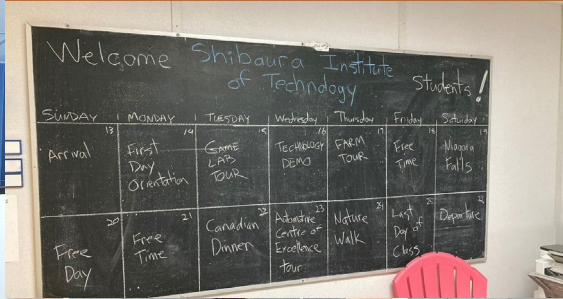 Welcome Shibaura Institute
of Technology
Students!
SUNDAY MONDAY TUESDAY Wednesday Thursday Friday Saturday
13 14 15 16 17 18 19
Arrival
First
Day
Orientation
GAME
LAB
TOUR
TECHNOLOGY
DEMO
FARM
TOUR
Free
Time
Niagara
Falls
20 21 22 23 24 25 26
Free
Day
Free
Time
Canadian
Dinner
Automotive
Centre of
Excellence
tour
Nature
Walk
Last
Day of
Class
Departure